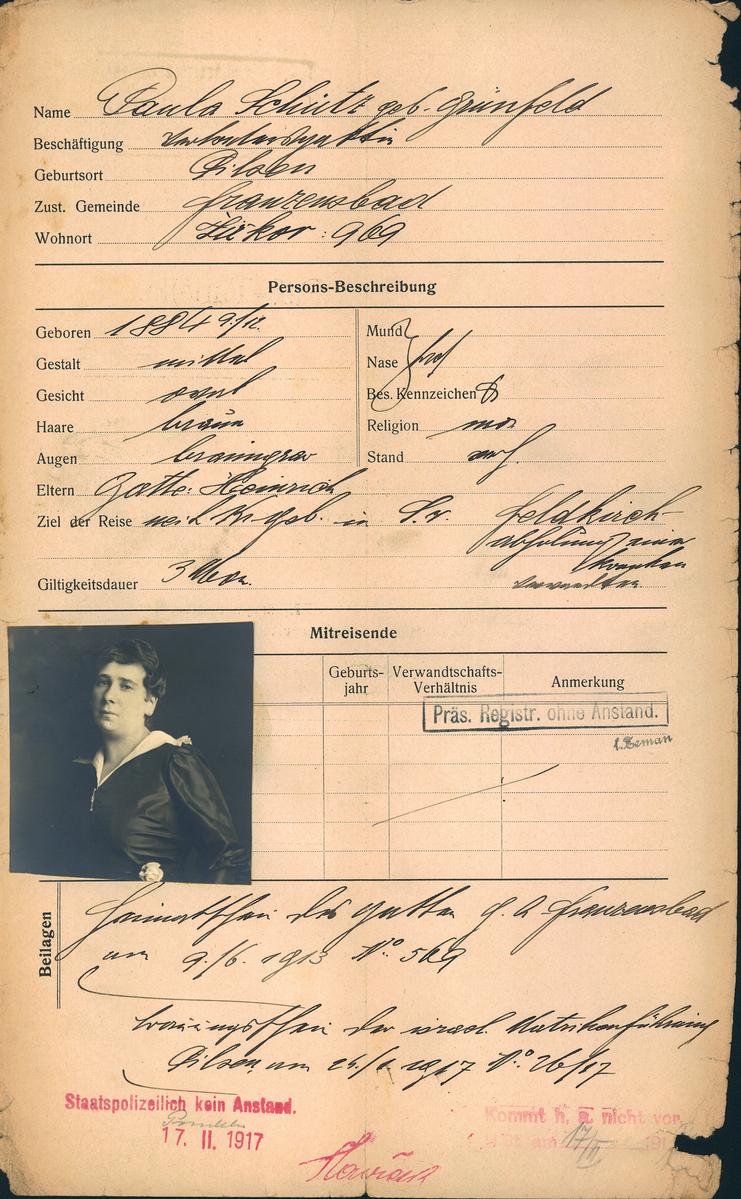 Name Paula Schütz geb. Grünfeld
Beschäftigung
Geburtsort Pilsen
Zust. Gemeinde Franzensbad
Wohnort Žižkov: 969
Persons-Beschreibung
Geboren 1884 9./12.
Gestalt mittel
Gesicht oval
Haare braun
Augen braungrau
Mund
Nase prop
Bes. Kennzeichen
Religion mos
Stand verh.
Eltern Gatte: Heinrich
Ziel der Reise in Feldkirch
abholung einer
kranken
verwandten
Giltigkeitsdauer 3 Mon.
Mitreisende
Geburts-
jahr
Verwandtschafts-
Verhältnis
Anmerkung
Präs. Registr. ohne Anstand.
Zeman
Beilagen
Heimatschein des Gatten Franzensbad
vom 9./6. 1913 No. 569
Trauungsschein der israel. Matrikenführung
Pilsen vom 1917 No. 26/17
Staatspolizeilich kein Anstand.
17. II. 1917
Kommt h. a. nicht vor.
am 17/II 191